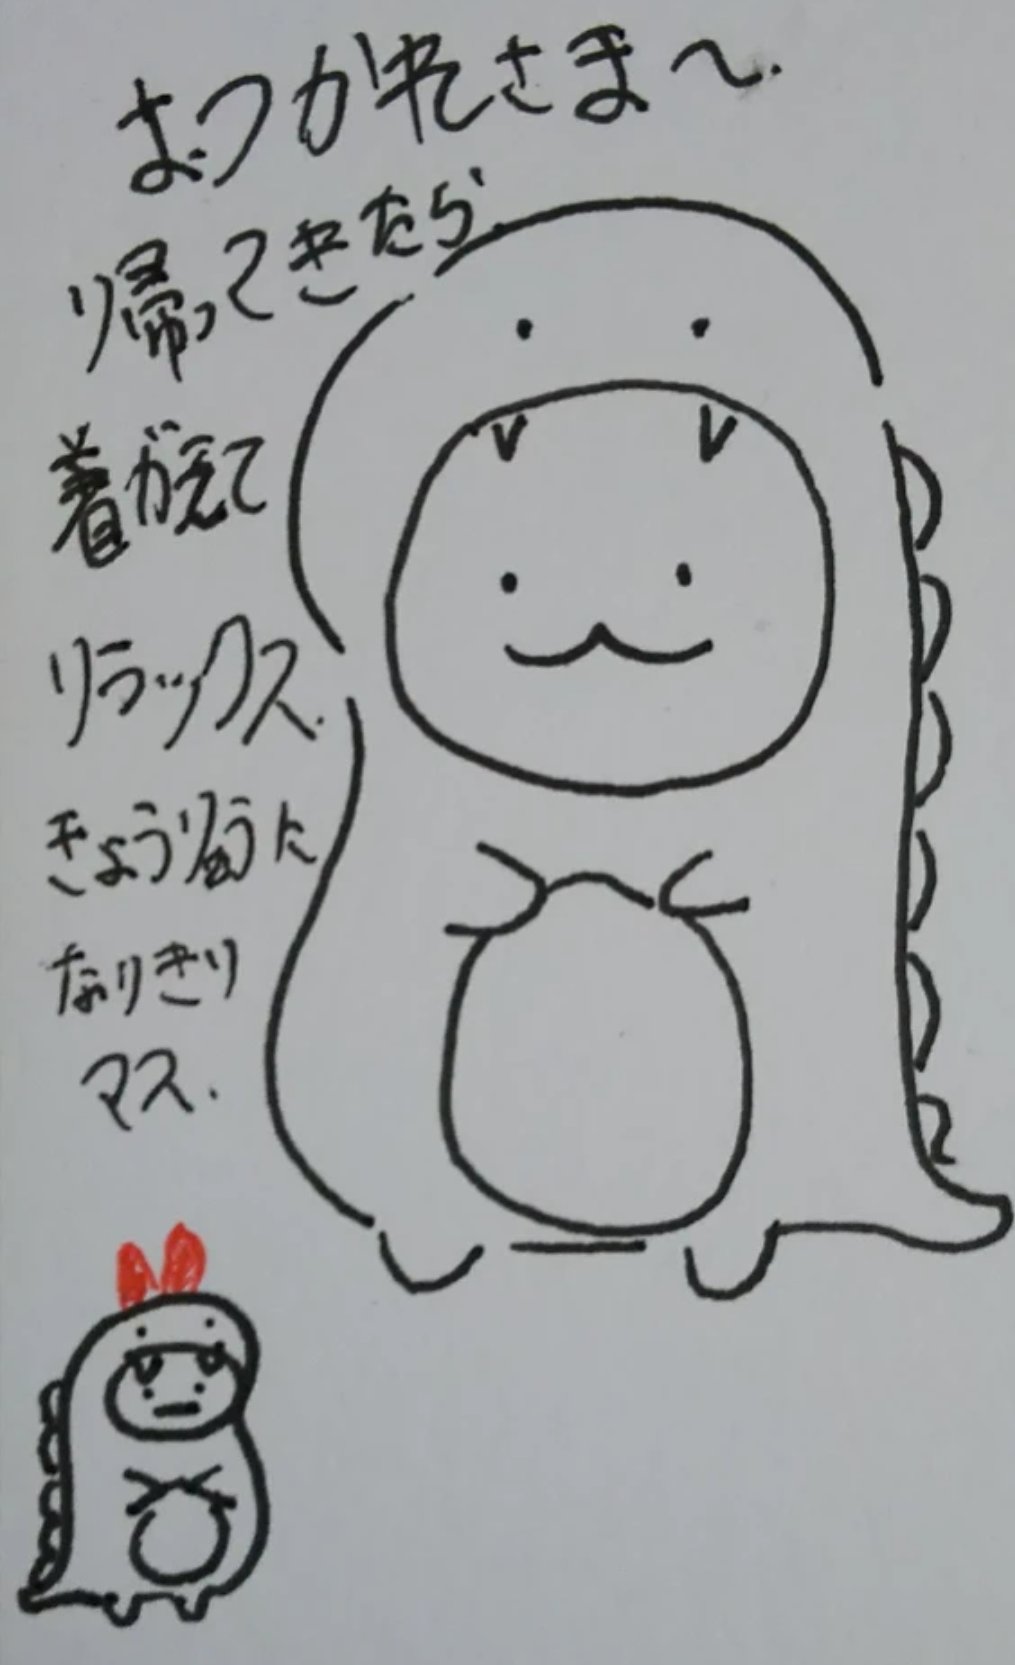 おつかれさま〜.
帰ってきたら
着がえて
リラックス.
きょうりゅうに
なりきり
マス.